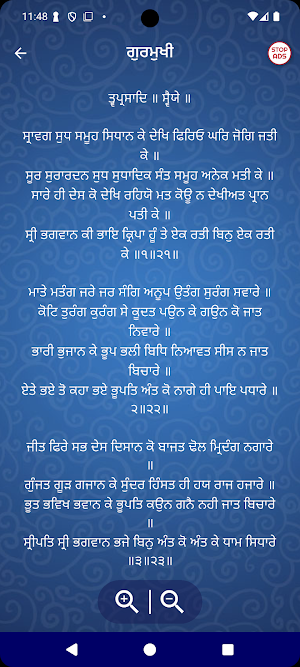 11:48
ਗੁਰਮੁਖੀ
STOP
ADS
ਤ੍ਵਪ੍ਰਸਾਦਿ ॥ ਸ੍ਵੈਯੇ ॥
ਸ੍ਰਾਵਗ ਸੁਧ ਸਮੂਹ ਸਿਧਾਨ ਕੇ ਦੇਖਿ ਫਿਰਿਓ ਘਰਿ ਜੋਗਿ ਜਤੀ
ਕੇ ॥
ਸੂਰ ਸੁਰਾਰਦਨ ਸੁਧ ਸੁਧਾਦਿਕ ਸੰਤ ਸਮੂਹ ਅਨੇਕ ਮਤੀ ਕੇ ॥
ਸਾਰੇ ਹੀ ਦੇਸ ਕੋ ਦੇਖਿ ਰਹਿਯੋ ਮਤ ਕੋਊ ਨ ਦੇਖੀਅਤ ਪ੍ਰਾਨ
ਪਤੀ ਕੇ ॥
ਸ੍ਰੀ ਭਗਵਾਨ ਕੀ ਭਾਇ ਕ੍ਰਿਪਾ ਹੂੰ ਤੇ ਏਕ ਰਤੀ ਬਿਨੁ ਏਕ ਰਤੀ
ਕੇ ॥੧॥੨੧॥
ਮਾਤੇ ਮਤੰਗ ਜਰੇ ਜਰ ਸੰਗਿ ਅਨੂਪ ਉਤੰਗ ਸੁਰੰਗ ਸਵਾਰੇ ॥
ਕੋਟਿ ਤੁਰੰਗ ਕੁਰੰਗ ਸੇ ਕੂਦਤ ਪਉਨ ਕੇ ਗਉਨ ਕੋ ਜਾਤ
ਨਿਵਾਰੇ ॥
ਭਾਰੀ ਭੁਜਾਨ ਕੇ ਭੂਪ ਭਲੀ ਬਿਧਿ ਨਿਆਵਤ ਸੀਸ ਨ ਜਾਤ
ਬਿਚਾਰੇ ॥
ਏਤੇ ਭਏ ਤੋ ਕਹਾ ਭਏ ਭੂਪਤਿ ਅੰਤ ਕੋ ਨਾਗੇ ਹੀ ਪਾਇ ਪਧਾਰੇ ॥
੨॥੨੨॥
ਜੀਤ ਫਿਰੇ ਸਭ ਦੇਸ ਦਿਸਾਨ ਕੋ ਬਾਜਤ ਢੋਲ ਮ੍ਰਿਦੰਗ ਨਗਾਰੇ
॥
ਗੁੰਜਤ ਗੂੜ ਗਜਾਨ ਕੇ ਸੁੰਦਰ ਹਿੰਸਤ ਹੀ ਹਯ ਰਾਜ ਹਜਾਰੇ ॥
ਭੂਤ ਭਵਿਖ ਭਵਾਨ ਕੇ ਭੂਪਤਿ ਕਉਨ ਗਨੈ ਨਹੀ ਜਾਤ ਬਿਚਾਰੇ
॥
ਸ੍ਰੀਪਤਿ ਸ੍ਰੀ ਭਗਵਾਨ ਭਜੇ ਬਿਨੁ ਅੰਤ ਕੋ ਅੰਤ ਕੇ ਧਾਮ ਸਿਧਾਰੇ
॥੩॥੨੩॥